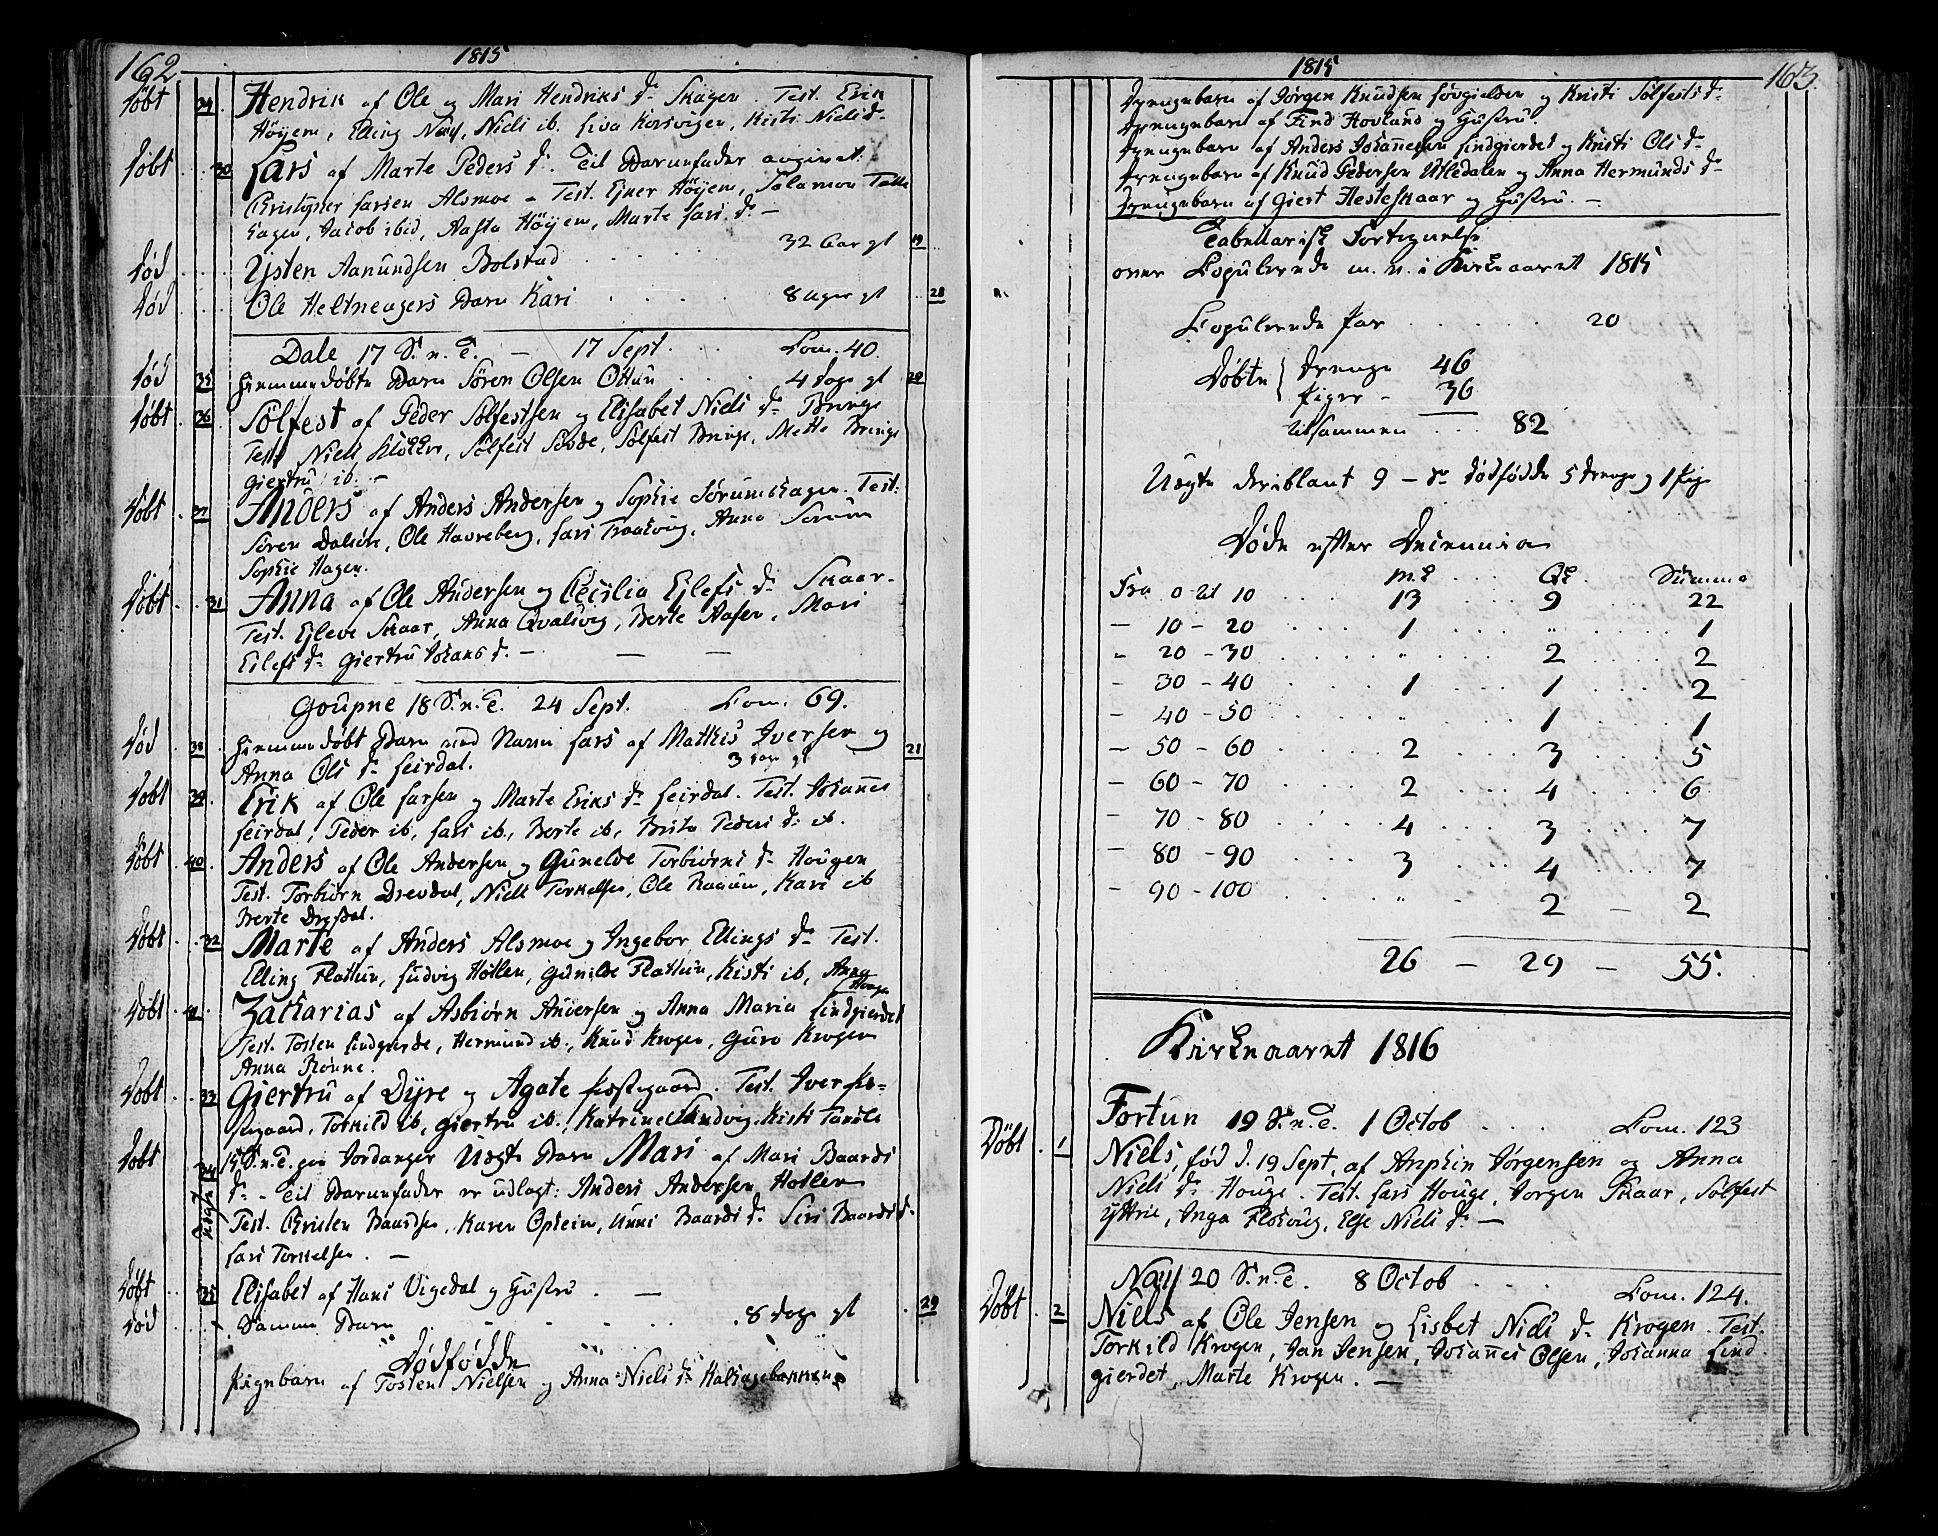 162 1815
Døbt 34. Hendrik af Ole og Mari Hendriks d. Skagen. Test. Erik
Höyem, Elling Nay, Niels ib. Liva Korsvigen, Kisti Niels d.
Døbt 30 Lars af Marte Peders d. Til Barnefader angivet:
Christopher Larsen Alsmoe - Test. Ejner Höyem, Salamon
Hagen, Jacob ibid, Aasta Höyem, Marte Lars d. -
Død Östen Aamundsen Bolstad 32 Aar gl 19
Død Ole Heltnengers Barn Kari 8 Uger gl 28
Dale 17 S. n. T. - 17 Sept. Com. 40.
Død 35 Hiemmedøbte Barn Sören Olsen Ottun 4 Dage gl 20
Døbt 36 Solfest af Peder Solfestsen og Elisabet Niels d. Bringe
Test. Niels Klokker, Solfest Sovde, Solfest Bringe, Mette Bringe
Giertru ib. -
Døbt 37 Anders af Anders Andersen og Sophie Sørumshagen. Test:
Sören Dalsöre, Ole Havreberg, Lars Traasvig, Anna Sorum
Sophie Hagen.
Døbt 31 Anna af Ole Andersen og Cecilia Ejlefs d. Skaar -
Test. Ejleve Skaar, Anna Qvalsvig, Berte Aasen, Mari
Eilefs d. Giertru Johans d. - - -
Goupne 18 S. n. T. 24 Sept. Com. 69.
Død 38 Hiemmedøbt Barn ved Navn Lars af Mathis Iversen og 21
Anna Ols d. Leirdal. 3 Dage gl
Døbt 39 Erik af Ole Larsen og Marte Eriks d. Leirdal. Test. Johannes
Leirdal, Peder ib, Lars ib., Berte ib, Brita Peders d. ib.
Døbt 40 Anders af Ole Andersen og Gunelde Torbiørns d. Hougen
Test. Torbiørn Drevdal, Niels Torkelsen, Ole Raaum, Kari ib
Berte Drevdal.
Døbt 32 Marte af Anders Alsmoe og Ingebor Ellings d. Test.
Elling Flattun, Ludvig Hollen, Gunilde Flattun, Kisti ib, Anna
Houge
Døbt 41 Zacharias af Asbiørn Andersen og Anna Maria Lindgierdet
Test. Tosten Lindgierde, Hermund ib., Knud Krogen, Guro Krogen
Anna Rönne.
Døbt 33 Giertru af Dyre og Agate Præstegaard. Test. Iver Præ-
stegaard, Torkild ib, Giertru ib., Katrine Sandvig, Kisti
Døbt 34 15 S. n. T. paa Jordanger Uægte Barn Mari af Mari Baards
d. - Til Barnefader er udlagt: Anders Andersen Hollen
Test. Christen Baardsen, Karen Opheim, Unni Baards d. Siri Baards d.
Lars Torkelsen. -
Døbt 35 Elisabet af Hans Vigedal og Hustru. -
Død Samme Barn 8 Dage gl 29
Dødfødde
Pigebarn af Tosten Nielsen og Anna Niels d. Halhagebakken
1815 163.
Drengebarn af Jørgen Knudsen Søvgielden og Kristi Solfests d.
Drengebarn af Find Hovland og Hustru.
Drengebarn af Anders Johannesen Lindgierdet og Kristi Ols d.
Drengebarn af Knud Pedersen Utledalen og Anna Hermunds d.
Drengebarn af Giert Hesteskaar og Hustru. -
Tabellarisk Fortegnelse
over Copulerede m. v. i Kirkeaaret 1815
Copulerede Par 20
Døbte { Drenge 46
Piger - 36
tilsammen 82
Uægte deriblant 9 - D. dødfødde 5 Drenge og 1 Pige
Døde efter Decennia
M.k. Q.k. Summa
Fra 0 til 10 13 9 22
- 10 - 20 1 „ 1
- 20 - 30 „ 2 2
- 30 - 40 1 1 2
- 40 - 50 „ 1 1
- 50 - 60 2 3 5
- 60 - 70 2 4 6
- 70 - 80 4 3 7
- 80 - 90 3 4 7
- 90 - 100 „ - 2 - 2
26 - 29 - 55.
Kirkeaaret 1816
Fortun 19 S. n. T. 1 Octob Com. 123
Döbt 1 Niels, fød d. 19 Sept, af Anphin Jørgensen og Anna
Niels d. Houge. Test. Lars Houge, Jorgen Skaar, Solfest
Yttrie, Inga Flohoug, Else Niels d. -
Nay 20 S. n. T. 8 Octob Com. 124.
Döbt 2 Niels af Ole Jensen og Lisbet Niels d. Krogen. Test.
Torkild Krogen, Jan Jensen, Johannes Olsen, Johanna Lind
gierdet, Marte Krogen. -